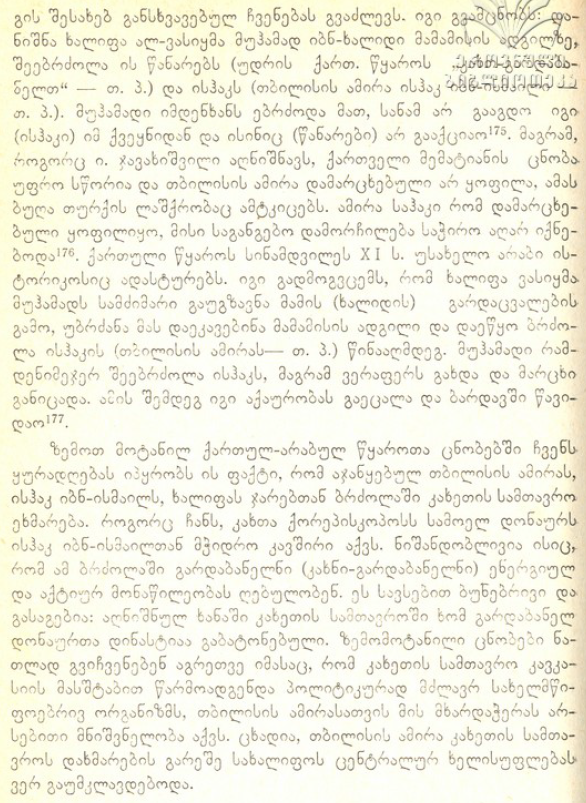 გის შესახებ განსხვავებულ ჩვენებას გვაძლევს. იგი გვამცნობს: და-
ნიშნა ხალიფა ალ-ვასიყმა მუჰამად იბნ-ხალიდი მამამისის ადგილზე,
შეებრძოლა ის წანარებს (უდრის ქართ. წყაროს „კახთ-გარდაბა-
ნელთ“ — თ. პ.) და ისჰაკს (თბილისის ამირა ისჰაკ იბნ-ისმაილი —
თ. პ.). მუჰამადი იმდენხანს ებრძოდა მათ, სანამ არ გააგდო იგი
(ისჰაკი) იმ ქვეყნიდან და ისინიც (წანარები) არ გააქცია¹⁷⁵. მაგრამ,
როგორც ი. ჯავახიშვილი აღნიშნავს, ქართველი მემატიანის ცნობა
უფრო სწორია და თბილისის ამირა დამარცხებული არ ყოფილა, ამას
ბუღა თურქის ლაშქრობაც ამტკიცებს. ამირა საჰაკი რომ დამარცხე-
ბული ყოფილიყო, მისი საგანგებო დამორჩილება საჭირო აღარ იქნე-
ბოდა¹⁷⁶. ქართული წყაროს სინამდვილეს XI ს. უსახელო არაბი ის-
ტორიკოსიც ადასტურებს. იგი გადმოგვცემს, რომ ხალიფა ვასიყმა
მუჰამადს სამძიმარი გაუგზავნა მამის (ხალიდის) გარდაცვალების
გამო, უბრძანა მას დაეკავებინა მამამისის ადგილი და დაეწყო ბრძო-
ლა ისჰაკის (თბილისის ამირას— თ. პ.) წინააღმდეგ. მუჰამადი რამ-
დენიმეჯერ შეებრძოლა ისჰაკს, მაგრამ ვერაფერს გახდა და მარცხი
განიცადა. ამის შემდეგ იგი აქაურობას გაეცალა და ბარდავში წავი-
და¹⁷⁷.
ზემოთ მოტანილ ქართულ-არაბულ წყაროთა ცნობებში ჩვენს
ყურადღებას იპყრობს ის ფაქტი, რომ აჯანყებულ თბილისის ამირას,
ისჰაკ იბნ-ისმაილს, ხალიფას ჯარებთან ბრძოლაში კახეთის სამთავრო
ეხმარება. როგორც ჩანს, კახთა ქორეპისკოპოსს სამოელ დონაურს
ისჰაკ იბნ-ისმაილთან მჭიდრო კავშირი აქვს. ნიშანდობლივია ისიც,
რომ ამ ბრძოლაში გარდაბანელნი (კახნი-გარდაბანელნი) ენერგიულ
და აქტიურ მონაწილეობას ღებულობენ. ეს სავსებით ბუნებრივი და
გასაგებია: აღნიშნულ ხანაში კახეთის სამთავროში ხომ გარდაბანელ
დონაურთა დინასტიაა გაბატონებული. ზემომოტანილი ცნობები ნა-
თლად გვიჩვენებენ აგრეთვე იმასაც, რომ კახეთის სამთავრო კავკა-
სიის მასშტაბით წარმოადგენდა პოლიტიკურად მძლავრ სახელმწი-
ფოებრივ ორგანიზმს, თბილისის ამირასათვის მის მხარდაჭერას არ-
სებითი მნიშვნელობა აქვს. ცხადია, თბილისის ამირა კახეთის სამთა-
ვროს დახმარების გარეშე სახალიფოს ცენტრალურ ხელისუფლებას
ვერ გაუმკლავდებოდა.